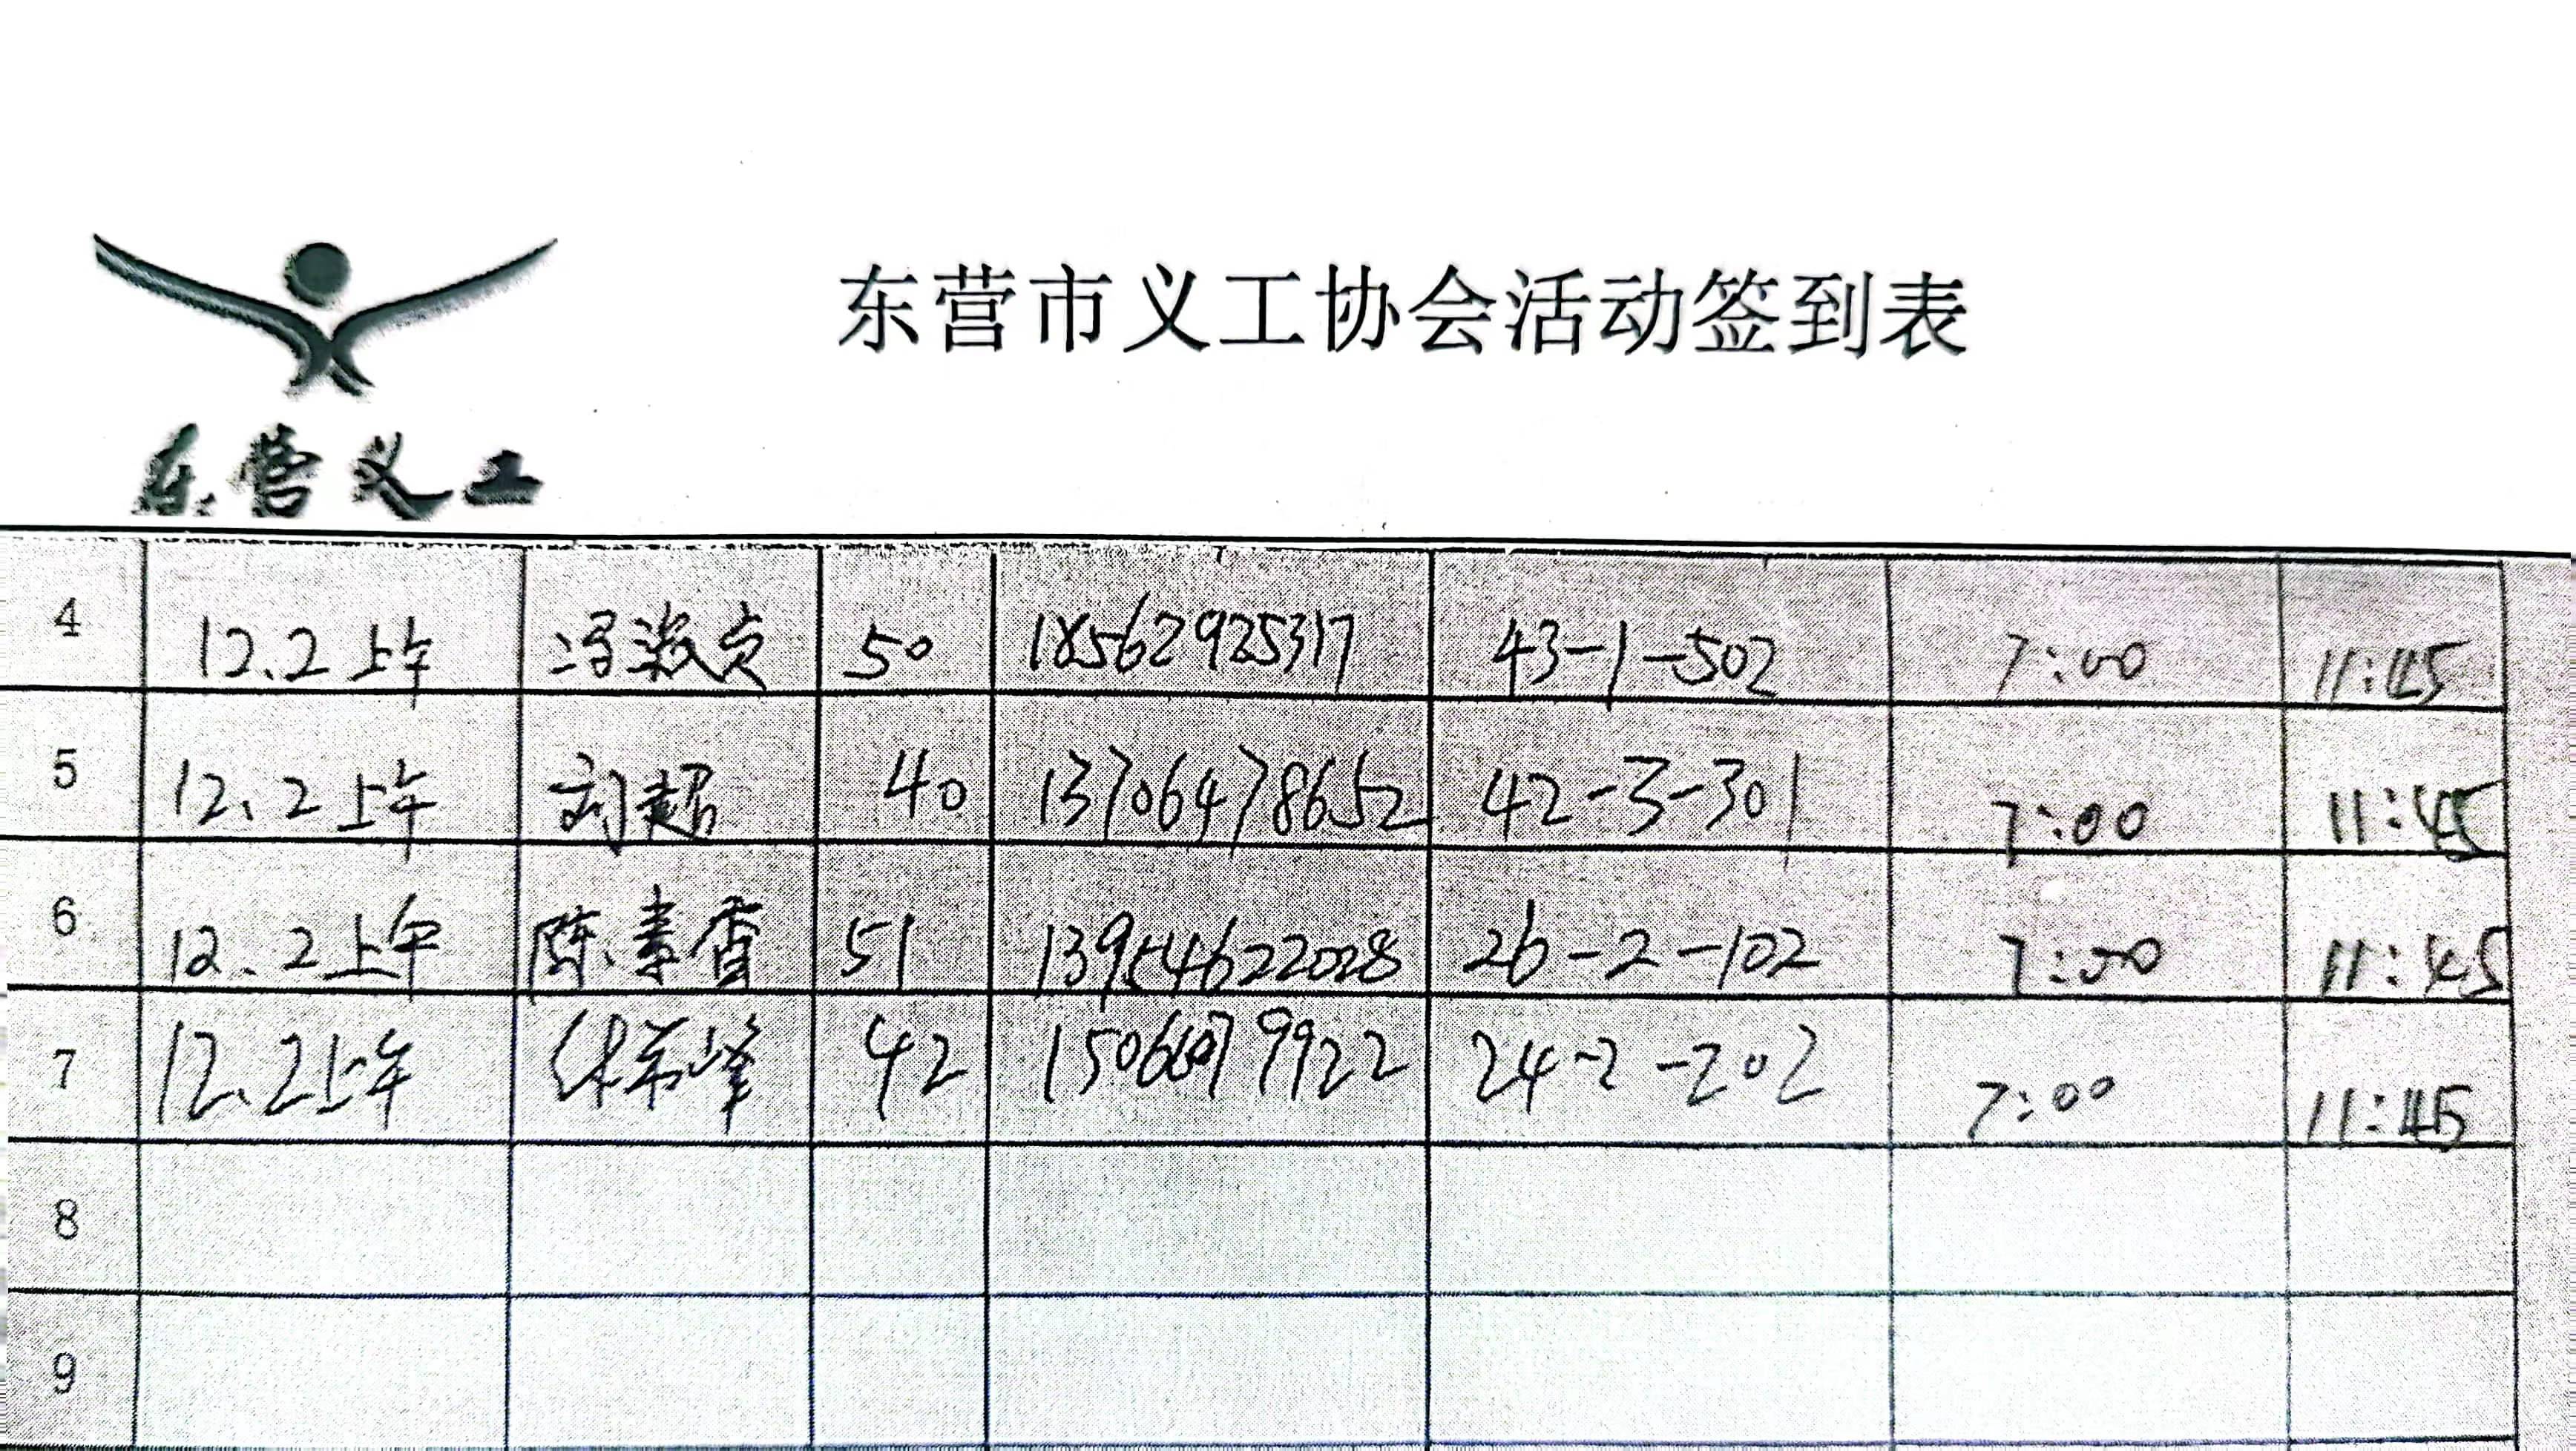 东营市义工协会活动签到表
东营义工
4 12.2上午 冯淑贞 50 18562925317 43-1-502 7:00 11:45
5 12.2上午 刘超 40 13706478652 42-3-301 7:00 11:45
6 12.2上午 陈素香 51 13954622028 26-2-102 7:00 11:45
7 12.2上午 峰 42 24-2-202 7:00 11:45
8
9